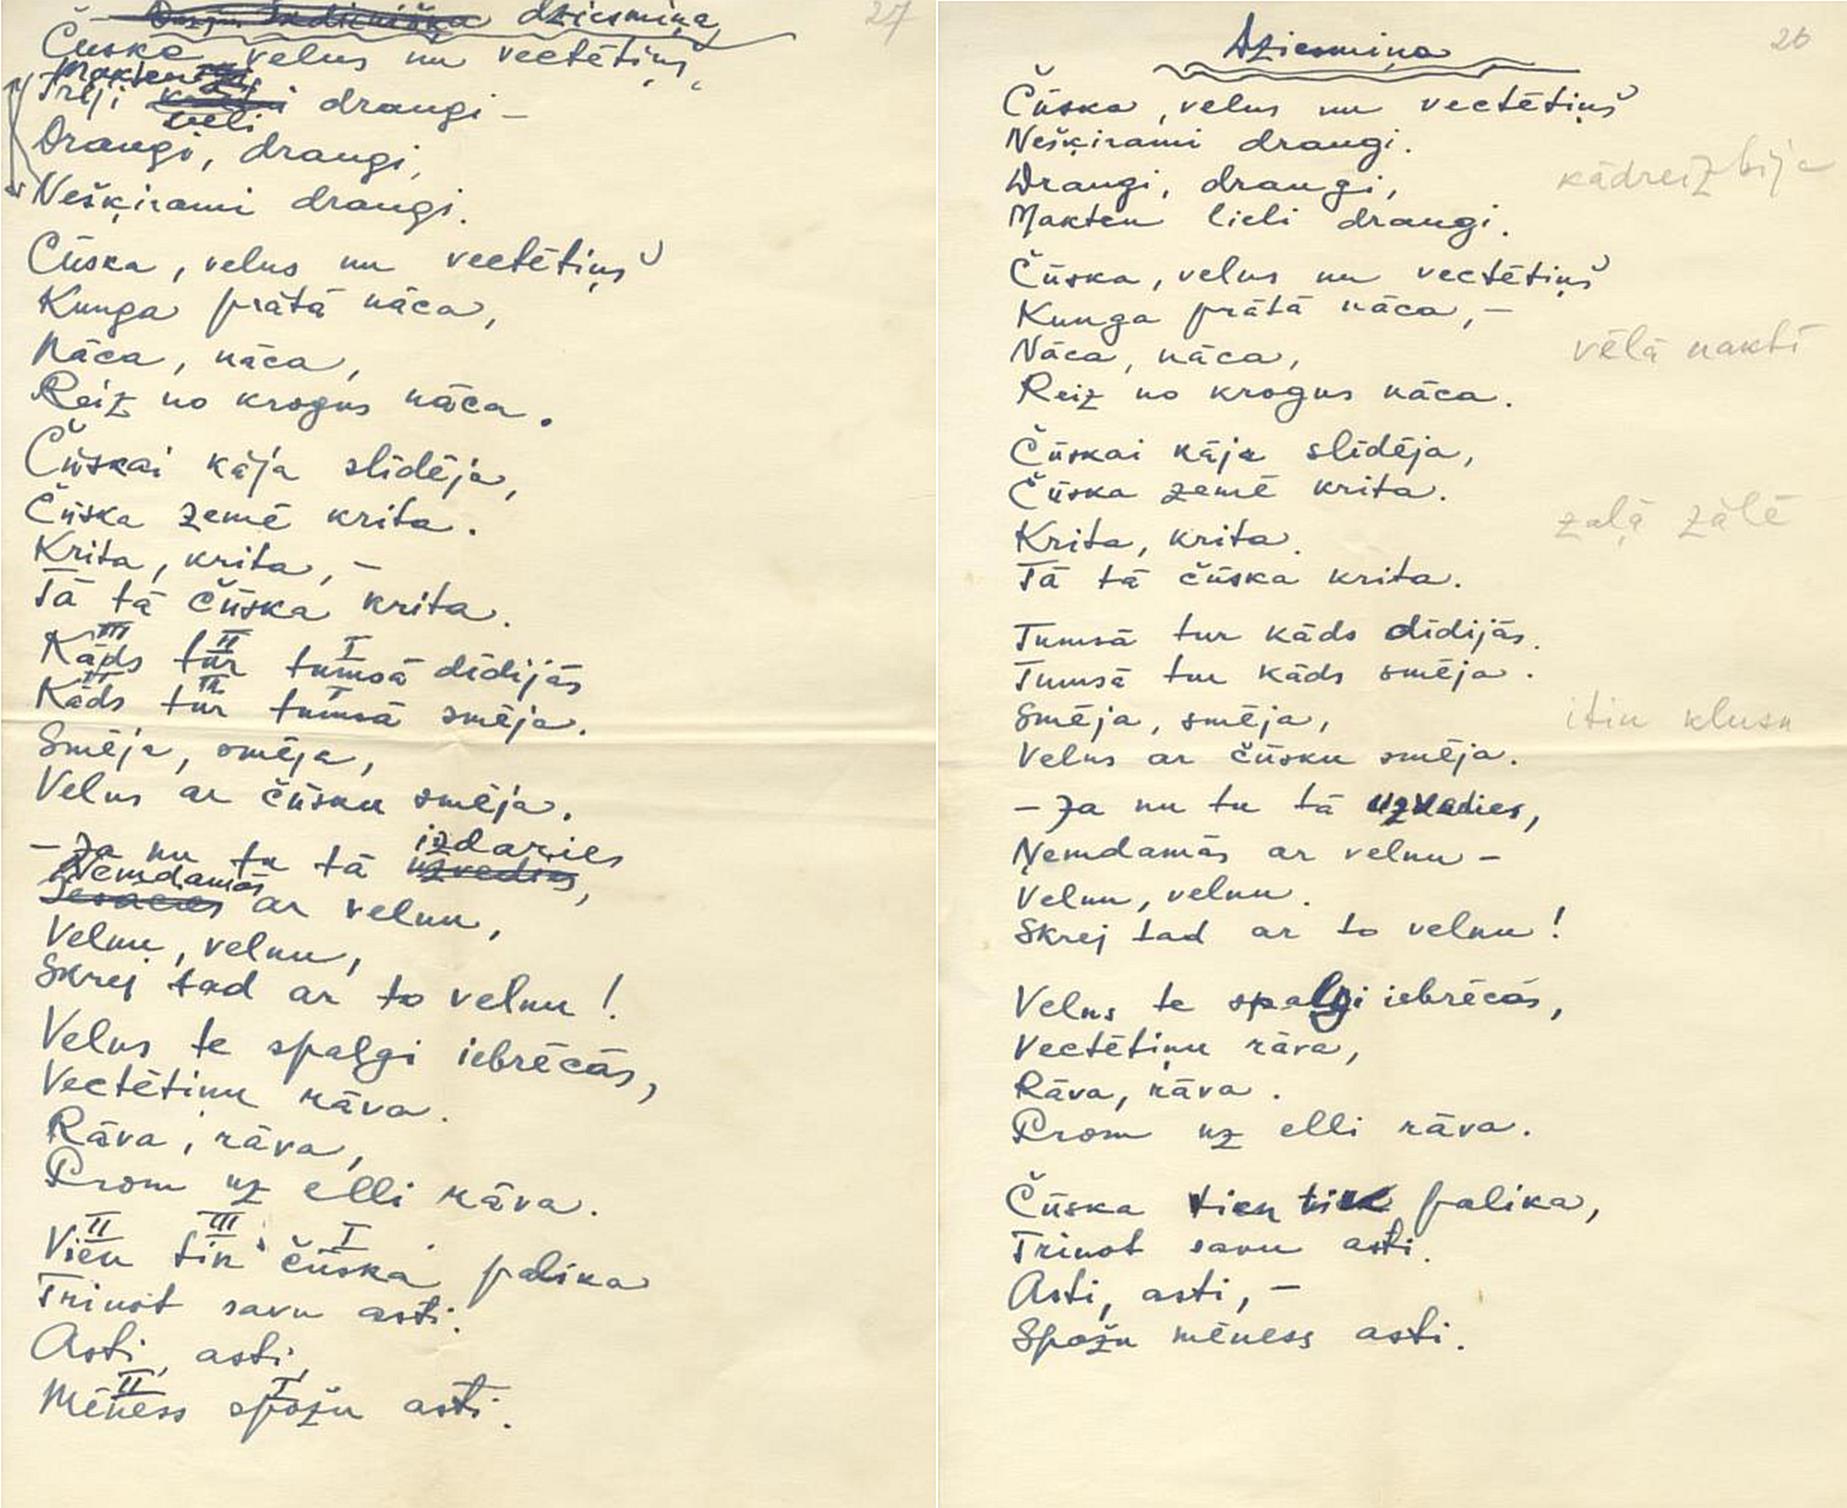 27
dziesmiņa
Čūska, velns un vectētiņš
Makten
Trīji draugi –
lieli
Draugi, draugi,
Nešķirami draugi.
Čūska, velns un vectētiņš
Kunga prātā nāca,
Nāca, nāca,
Reiz no krogus nāca.
Čūskai kāja slīdēja,
Čūska zemē krita.
Krita, krita, –
Tā tā čūska krita.
III II I
Kāds tur tumsā dīdijās
II III I
Kāds tur tumsā smēja.
Smēja, smēja,
Velns ar čūsku smēja.
izdaries
– Ja nu tu tā uzvedies,
Ņemdamās
ar velnu,
Velnu, velnu,
Skrej tad ar to velnu!
Velns te spalgi iebrēcās,
Vectētiņu rāva.
Rāva, rāva,
Prom uz elli rāva.
II III I
Vien tik čūska palika
Trinot savu asti.
Asti, asti,
II I
Mēness spožu asti.
26
Dziesmiņa
Čūska, velns un vectētiņš
Nešķirami draugi.
Draugi, draugi,
kādreiz bija
Makten lieli draugi.
Čūska, velns un vectētiņš
Kunga prātā nāca, –
Nāca, nāca,
vēlā naktī
Reiz no krogus nāca.
Čūskai kāja slīdēja,
Čūska zemē krita.
Krita, krita.
zaļā zālē
Tā tā čūska krita.
Tumsā tur kāds dīdijās.
Tumsā tur kāds smēja.
Smēja, smēja,
itin klusu
Velns ar čūsku smēja.
– Ja nu tu tā uzvedies,
Ņemdamās ar velnu –
Velnu, velnu.
Skrej tad ar to velnu!
Velns te spalgi iebrēcās,
Vectētiņu rāva,
Rāva, rāva.
Prom uz elli rāva.
Čūska vien tik palika,
Trinot savu asti.
Asti, asti, –
Spožu mēness asti.